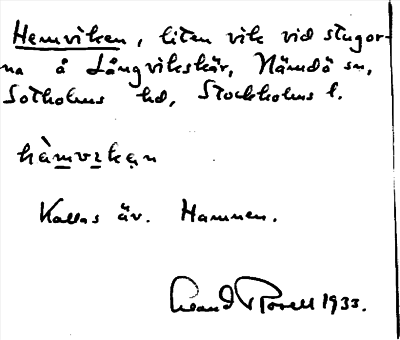 Hemviken, liten vik vid stugor-
na å Långvikskär, Nämdö sn,
Sotholms hd, Stockholms l.
hàmvikan
Kallas äv. Hamnen.
Rosell 1933.